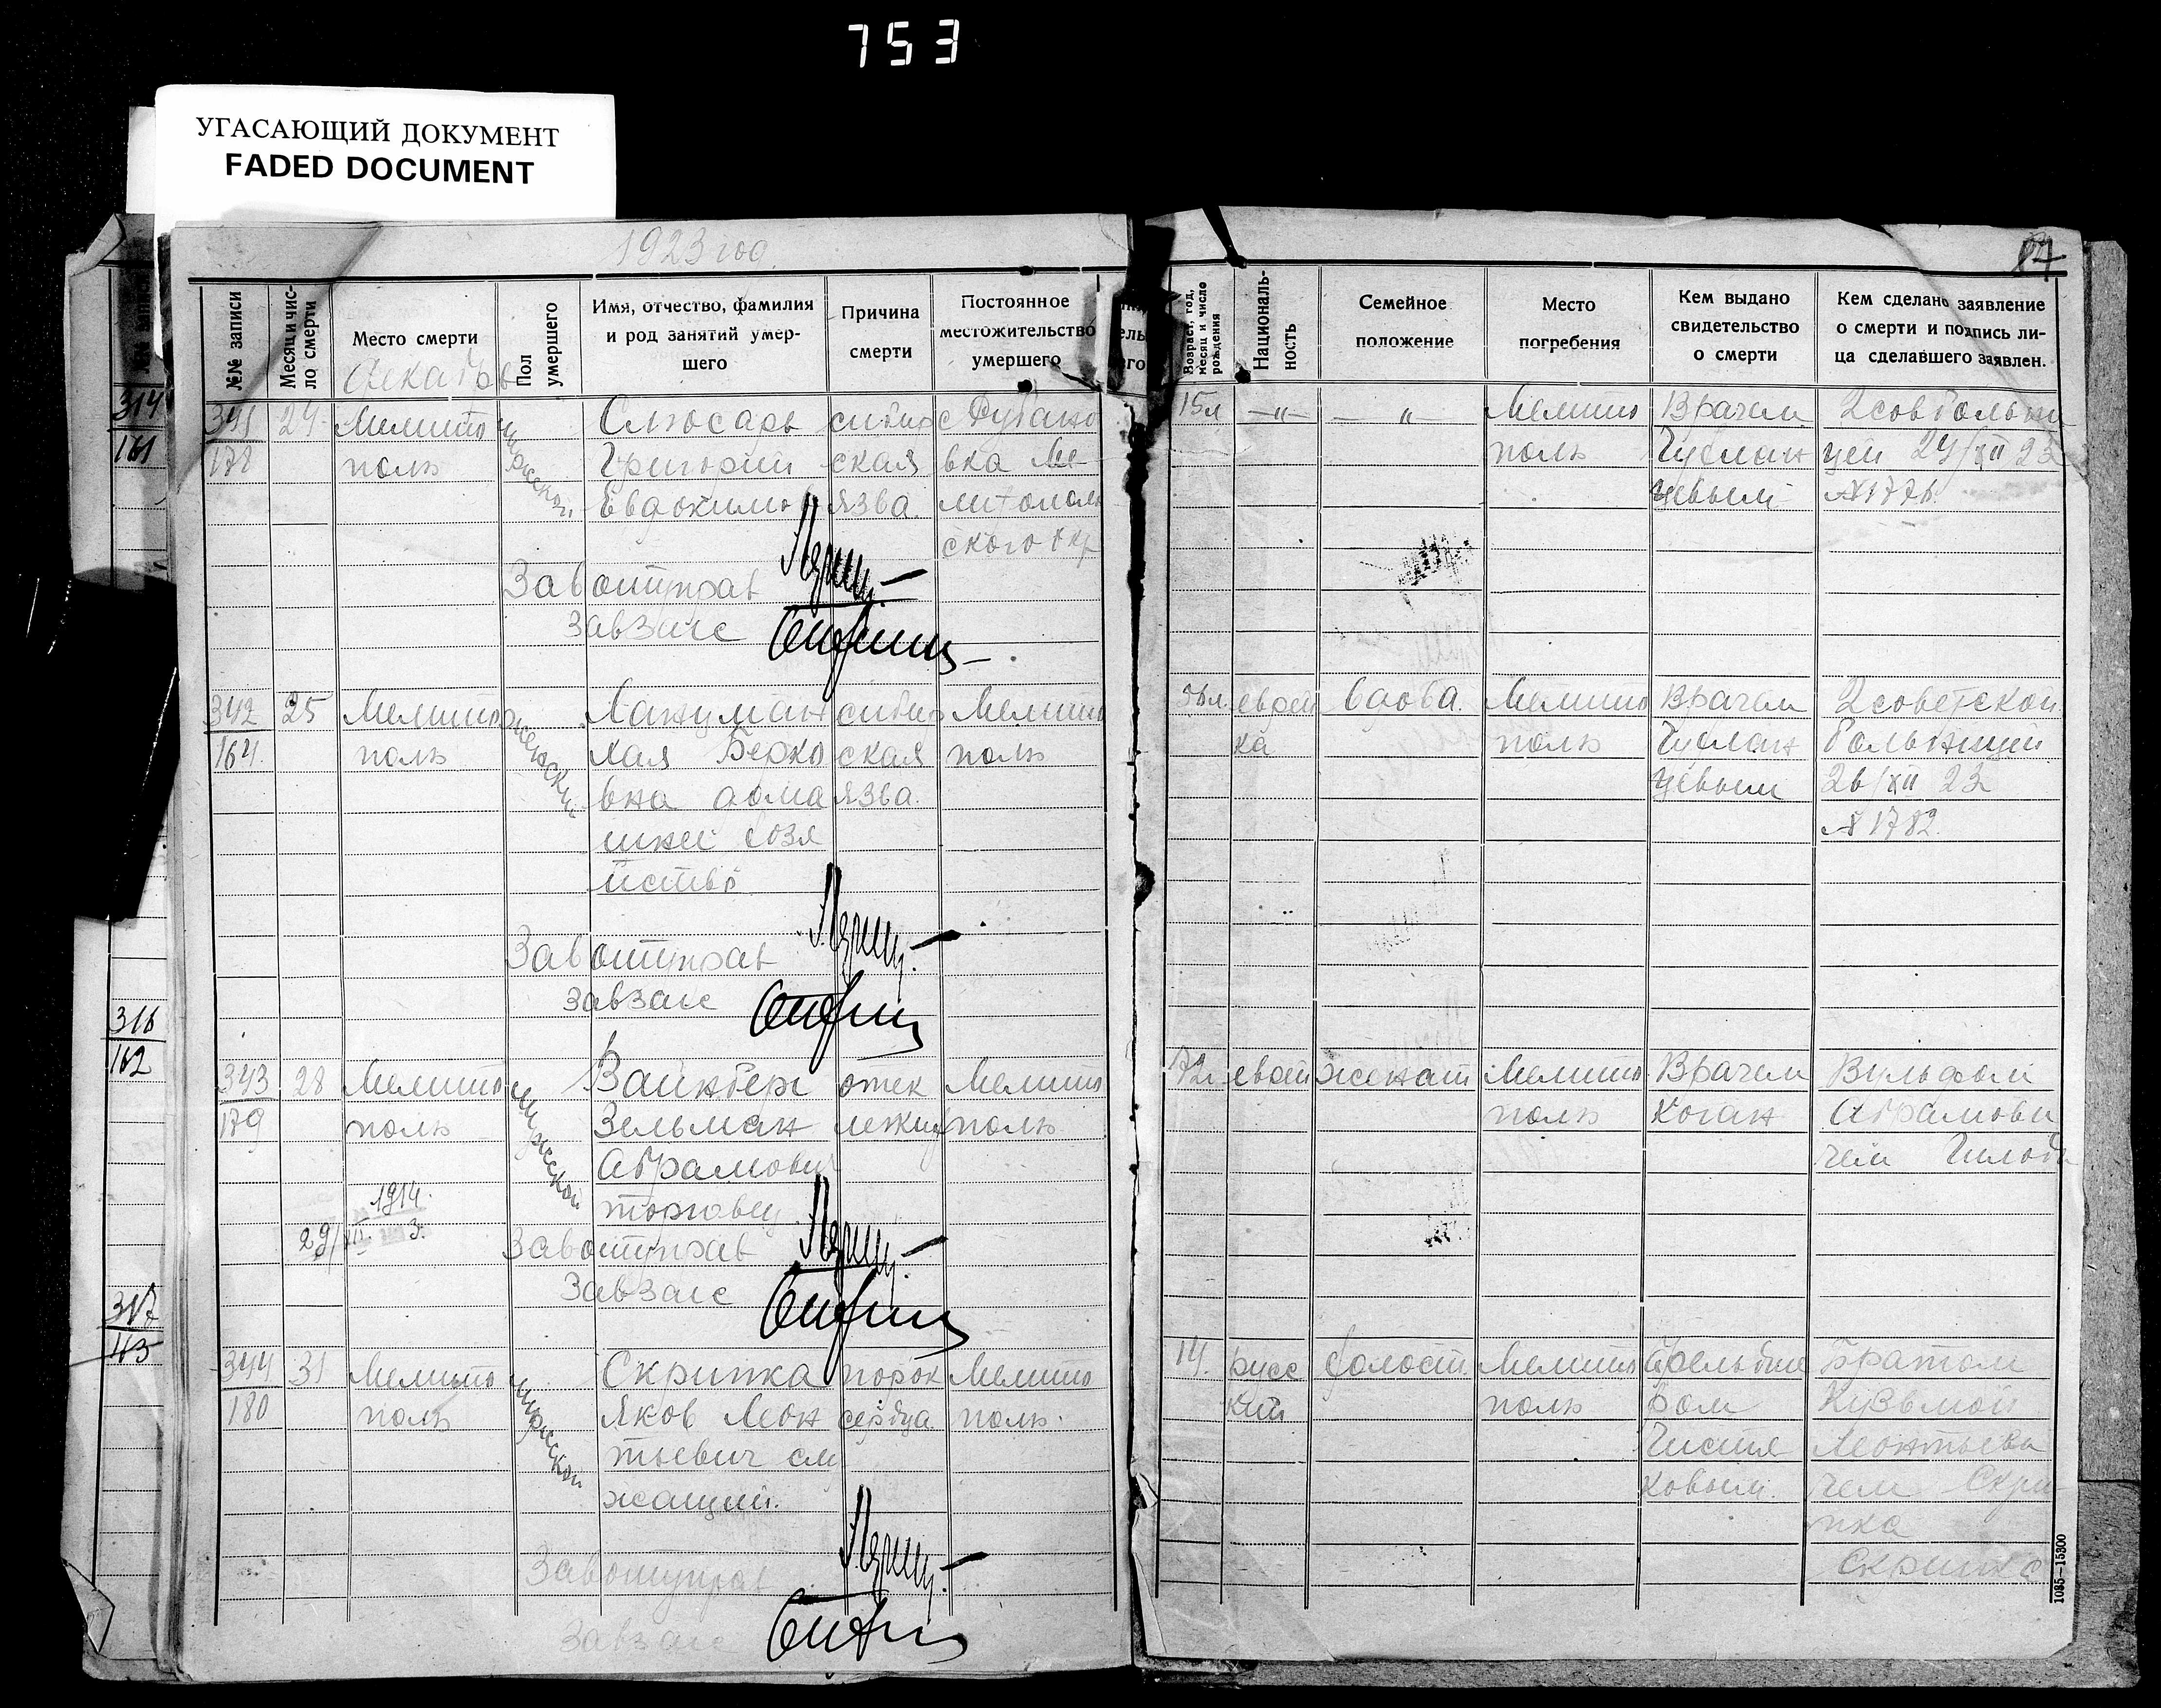 753
УГАСАЮЩИЙ ДОКУМЕНТ
FADED DOCUMENT
1923 год.
87
№№ записи
Месяц и чис-
ло смерти
Место смерти
Декабрь
Пол
умершего
Имя, отчество, фамилия
и род занятий умер-
шего
Причина
смерти
Постоянное
местожительство
умершего
Возраст, год,
месяц и число
рождения
Националь-
ность
Семейное
положение
Место
погребения
Кем выдано
свидетельство
о смерти
Кем сделано заявление
о смерти и подпись ли-
ца сделавшего заявлен.
314
161
316
162
317
163
341
178
24
Мелито
поль
мужской
Слюсарь
Григорий
Евдокимов
сибир
ская
язва.
с
вка Ме-
литополь
ского окр
15л
—"—
—"—
Мелито
поль
Врачем
2 сов больни
цей 24/XII 23
№ 1776
Завотуправ
Завзагс
342
164.
25
Мелито
поль
женский
Хая Берко
вна дома
шнее хозя
йство
сибир
ская
язва.
Мелито
поль
еврей
ка
вдова.
Мелито
поль
Врачем
2 советской
больницей
26/XII 23
№ 1782.
Завотуправ
Завзагс
343
179
28
Мелито
поль
мужской
Вайнберг
Зельман
Абрамович
торговец
отек
легких
Мелито
поль
72л
еврей
женат
Мелито
поль
Врачем
Коган
Вульфом
Абрамови
чем
1914.
29/III. 3.
Завотуправ
Завзагс
344
180
31
Мелито
поль
мужской
Скрипка
Яков Леон
тьевич слу
жащий.
порок
сердца
Мелито
поль.
русс
кий
холост.
Мелито
поль
Фельдше
ром
Чистя
ковым.
Братом
Кузьмой
Леонтьеви
чем Скри
пка
Скрипка
Завотуправ
Завзагс
1085—15300